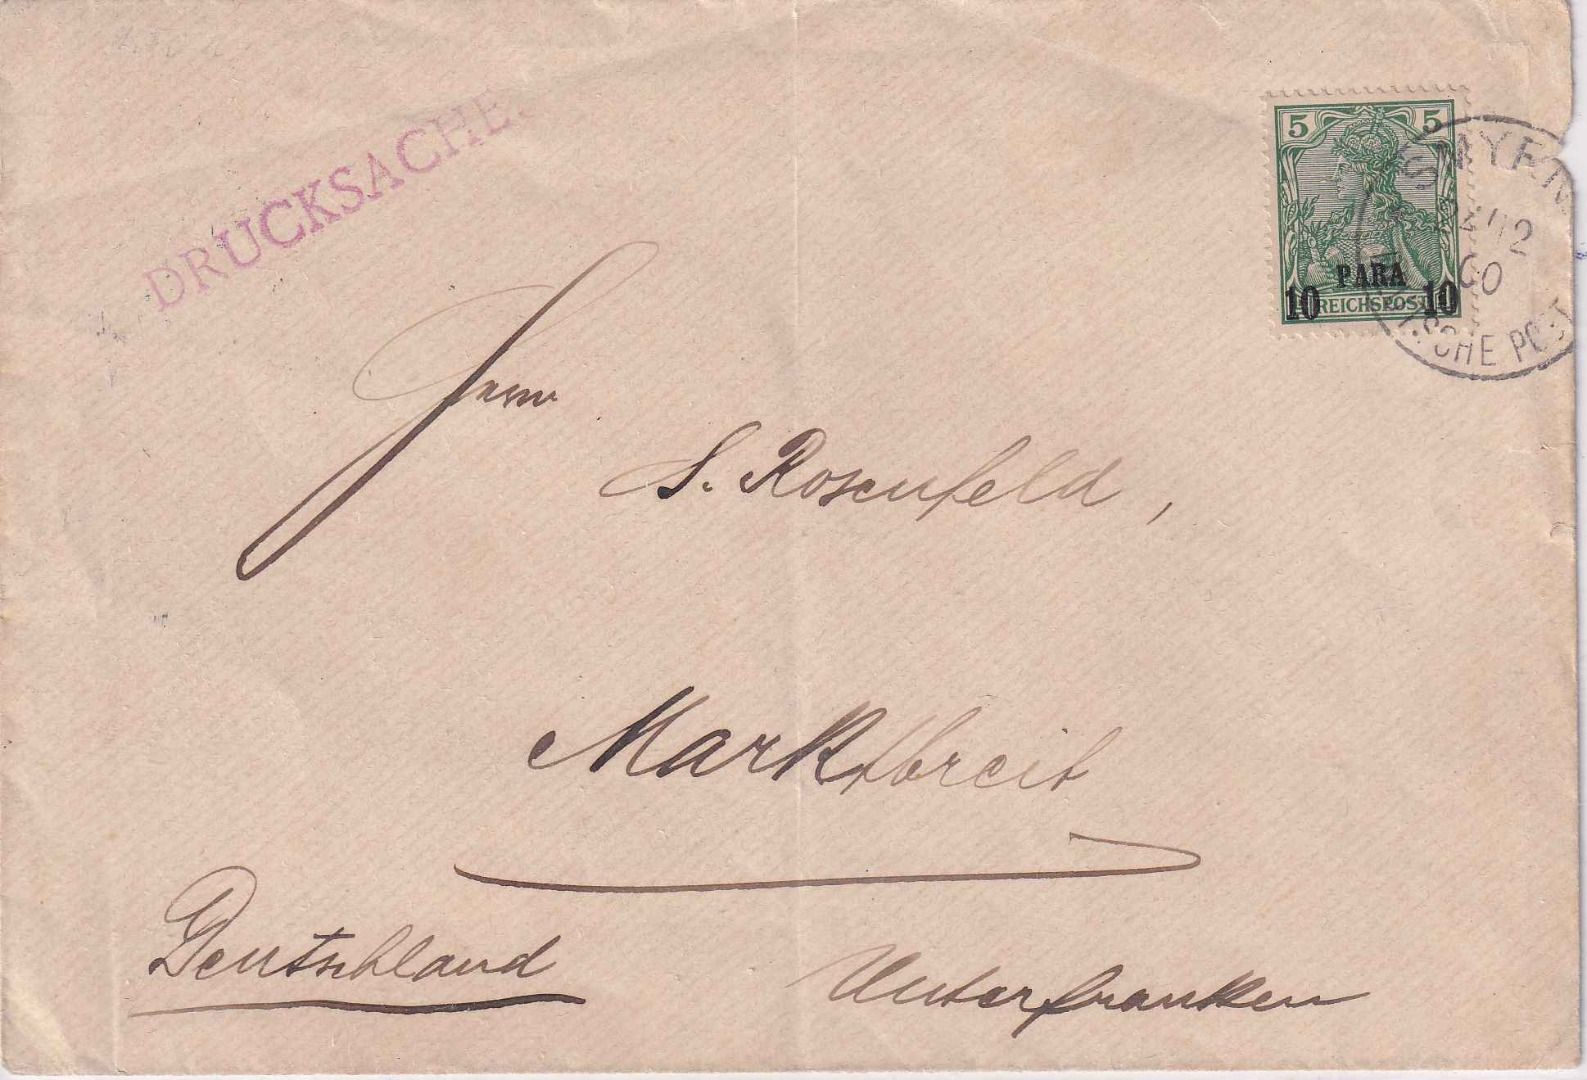 DRUCKSACHE.
5 5
PARA
10 10
REICHSPOST
SMYRN
12
00
SCHE POST
Herrn
S. Rosenfeld,
Marktbreit
Deutschland
Unterfranken